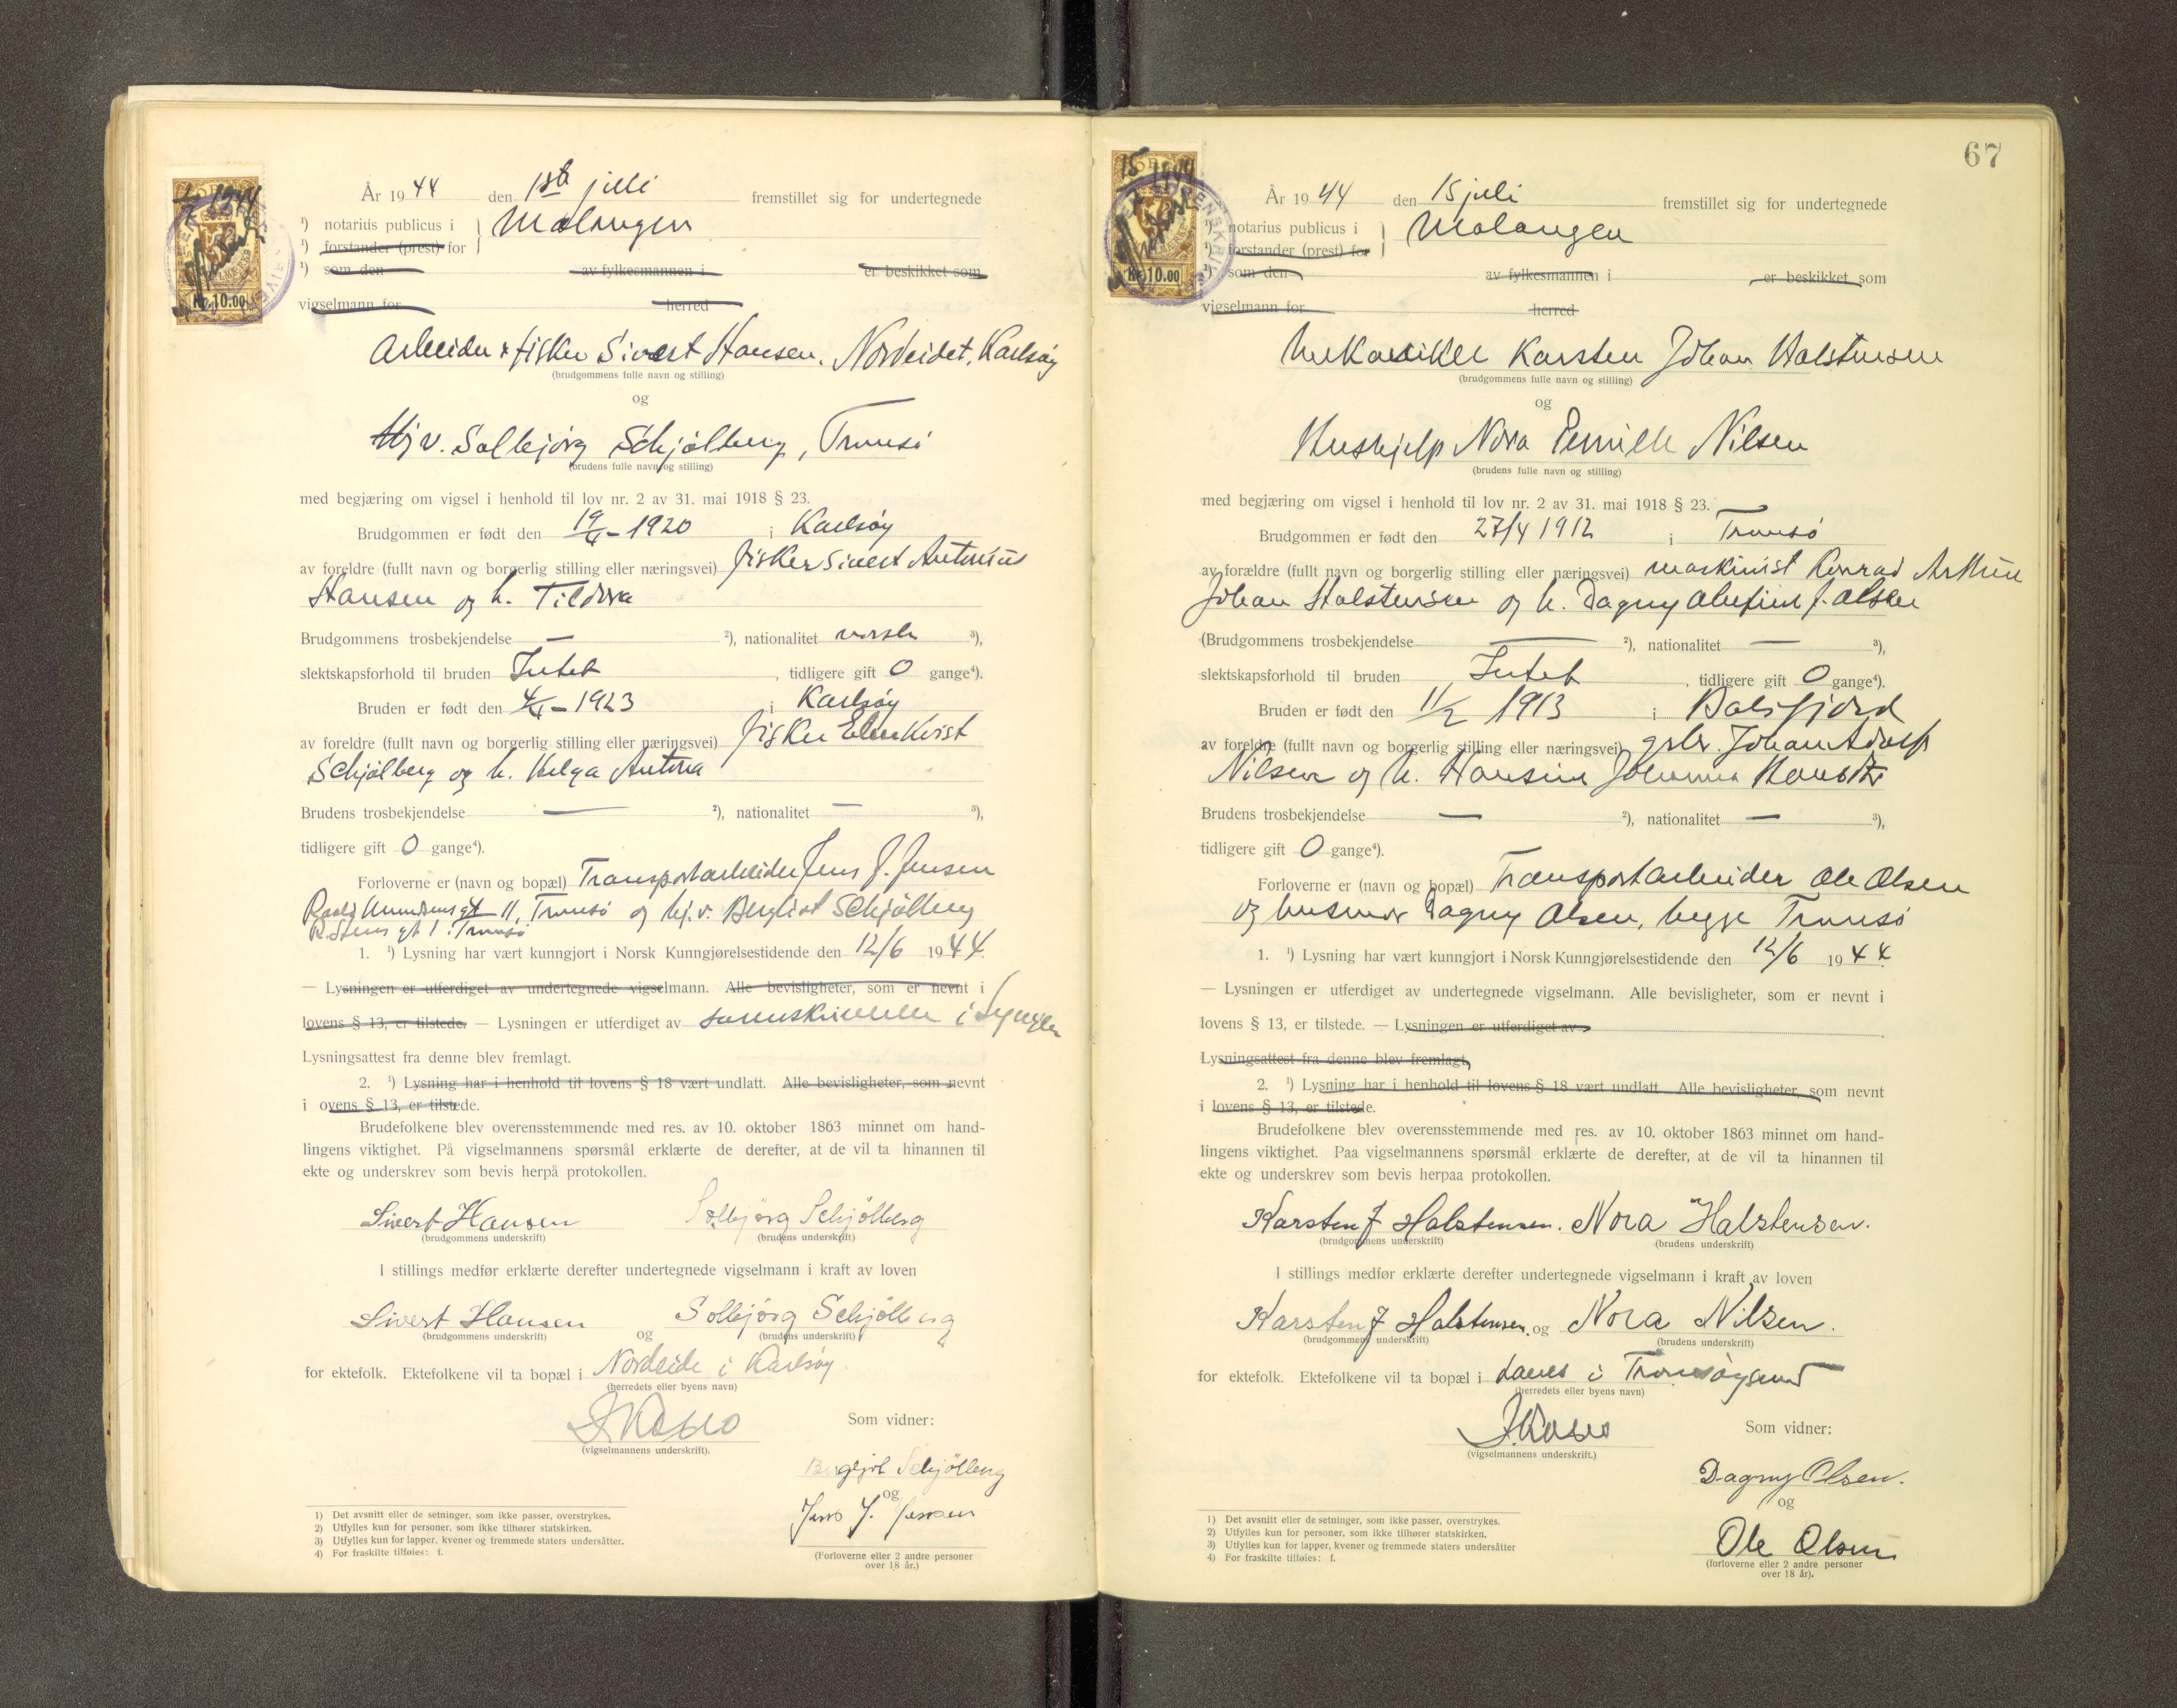 År 1944 den 1ste juli fremstillet sig for undertegnede
¹) notarius publicus i } Malangen
¹) forstander (prest) for
¹) som den av fylkesmannen i er beskikket som
vigselmann for herred
Arbeider & fisker Sivert Hansen, Nordeidet, Karlsøy
(brudgommens fulle navn og stilling)
og
Hjv. Solbjørg Schjølberg, Tromsø
(brudens fulle navn og stilling)
med begjæring om vigsel i henhold til lov nr. 2 av 31. mai 1918 § 23.
Brudgommen er født den 1920 i Karlsøy
av foreldre (fullt navn og borgerlig stilling eller næringsvei) fisker Sivert Antonius
Hansen og h. Tildora
Brudgommens trosbekjendelse — ²), nationalitet norsk ³),
slektskapsforhold til bruden Intet, tidligere gift 0 gange⁴).
Bruden er født den 1923 i Karlsøy
av foreldre (fullt navn og borgerlig stilling eller næringsvei) fisker Elenkvist
Schjølberg og h. Helga Antona
Brudens trosbekjendelse — ²), nationalitet — ³),
tidligere gift 0 gange⁴).
Forloverne er (navn og bopæl) Transportarbeider Jens J. Jensen
Roald Amundsens gt 11, Tromsø og hj.v. Bergliot Schjølberg
gt 1. Tromsø
1. ¹) Lysning har vært kunngjort i Norsk Kunngjørelsestidende den 12/6 1944.
— Lysningen er utferdiget av undertegnede vigselmann. Alle bevisligheter, som er nevnt i
lovens § 13, er tilstede. — Lysningen er utferdiget av sorenskriveren i Lyngen
Lysningsattest fra denne blev fremlagt.
2. ¹) Lysning har i henhold til lovens § 18 vært undlatt. Alle bevisligheter, som nevnt
i ovens § 13, er tilstede.
Brudefolkene blev overensstemmende med res. av 10. oktober 1863 minnet om hand-
lingens viktighet. På vigselmannens spørsmål erklærte de derefter, at de vil ta hinannen til
ekte og underskrev som bevis herpå protokollen.
Sivert Hansen Solbjørg Schjölberg
(brudgommens underskrift) (brudens underskrift)
I stillings medfør erklærte derefter undertegnede vigselmann i kraft av loven
Sivert Hansen og Solbjörg Schjölberg
(brudgommens underskrift) (brudens underskrift)
for ektefolk. Ektefolkene vil ta bopæl i Nordeide i Karlsøy
(herredets eller byens navn)
(vigselmannens underskrift).
Som vidner:
Schjölberg
og
Jens J. Jensen
(Forloverne eller 2 andre personer
over 18 år.)
1) Det avsnitt eller de setninger, som ikke passer, overstrykes.
2) Utfylles kun for personer, som ikke tilhører statskirken.
3) Utfylles kun for lapper, kvener og fremmede staters undersåtter.
4) For fraskilte tilføies: f.
Kr. 10.00
67
År 1944 den 15 juli fremstillet sig for undertegnede
¹) notarius publicus i } Malangen
¹) forstander (prest) for
¹) som den av fylkesmannen i er beskikket som
vigselmann for herred
Mekaniker Karsten Johan Halstensen
(brudgommens fulle navn og stilling)
og
Hushjelp Nora Pernille Nilsen
(brudens fulle navn og stilling)
med begjæring om vigsel i henhold til lov nr. 2 av 31. mai 1918 § 23.
Brudgommen er født den 27/4 1912 i Tromsø
av forældre (fullt navn og borgerlig stilling eller næringsvei) maskinist Konrad Arthur
Johan Halstensen og h. Dagny f. Olsen
(Brudgommens trosbekjendelse — ²), nationalitet — ³),
slektskapsforhold til bruden Intet, tidligere gift 0 gange⁴).
Bruden er født den 11/2 1913 i Balsfjord
av foreldre (fullt navn og borgerlig stilling eller næringsvei) gbr. Johan Adolf
Nilsen og h. Hansine Johanna
Brudens trosbekjendelse — ²), nationalitet — ³),
tidligere gift 0 gange⁴).
Forloverne er (navn og bopæl) Transportarbeider Ole Olsen
og husmor Dagny Olsen, begge Tromsø
1. ¹) Lysning har vært kunngjort i Norsk Kunngjørelsestidende den 12/6 1944.
— Lysningen er utferdiget av undertegnede vigselmann. Alle bevisligheter, som er nevnt i
lovens § 13, er tilstede. — Lysningen er utferdiget av
Lysningsattest fra denne blev fremlagt.
2. ¹) Lysning har i henhold til lovens § 18 vært undlatt. Alle bevisligheter, som nevnt
i lovens § 13, er tilstede.
Brudefolkene blev overensstemmende med res. av 10. oktober 1863 minnet om hand-
lingens viktighet. Paa vigselmannens spørsmål erklærte de derefter, at de vil ta hinannen til
ekte og underskrev som bevis herpaa protokollen.
Karsten J Halstensen. Nora Halstensen.
(brudgommens underskrift) (brudens underskrift)
I stillings medfør erklærte derefter undertegnede vigselmann i kraft av loven
Karsten J Halstensen. og Nora Nilsen.
(brudgommens underskrift) (brudens underskrift)
for ektefolk. Ektefolkene vil ta bopæl i i Tromsøysund
(herredets eller byens navn)
(vigselmannens underskrift.)
Som vidner:
Dagny Olsen.
og
Ole Olsen
(forloverne eller 2 andre personer
over 18 år).
1) Det avsnitt eller de setninger, som ikke passer, overstrykes.
2) Utfylles kun for personer, som ikke tilhører statskirken.
3) Utfylles kun for lapper, kvener og fremmede staters undersåtter
4) For fraskilte tilføies: f.
Kr. 10.00